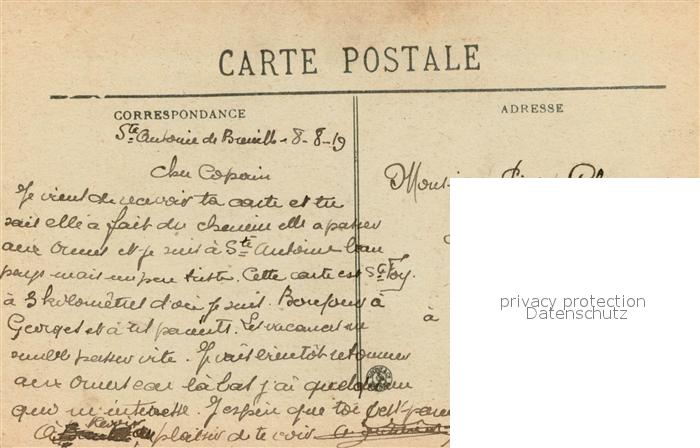 CARTE POSTALE
CORRESPONDANCE
ADRESSE
Ste Antoine de Breuilh - 8-8-19
cher Copain
Je vient de recevoir ta carte et tu
sait elle a fait du chemin elle a passer
aux Ormes et je suis à Ste Antoine beau
pays mais un peu triste. Cette carte est Ste Foy.
à 3 kilomètres d'où je suis. Bonjour à
Georges et à tes parents. Les vacances me
semble passer vite. Je vait bientôt retourner
aux Ormes car là bas j'ai quelqu'un
qui m'intéresse. J'espère que toi
A Revoir au plaisir de te voir
Monsieur
à
privacy protection
Datenschutz